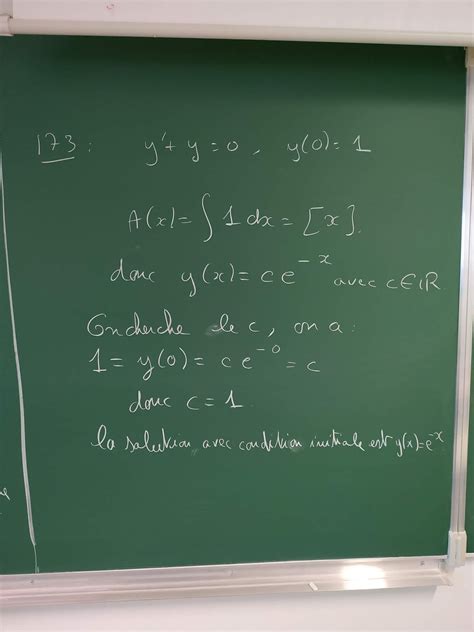 173 : y'+ y = 0 , y(0) = 1
A(x) = ∫ 1 dx = [x].
donc y(x) = c e^{-x} avec c ∈ ℝ
On cherche le c, on a :
1 = y(0) = c e^{-0} = c
donc c = 1
la solution avec condition initiale est y(x) = e^{-x}